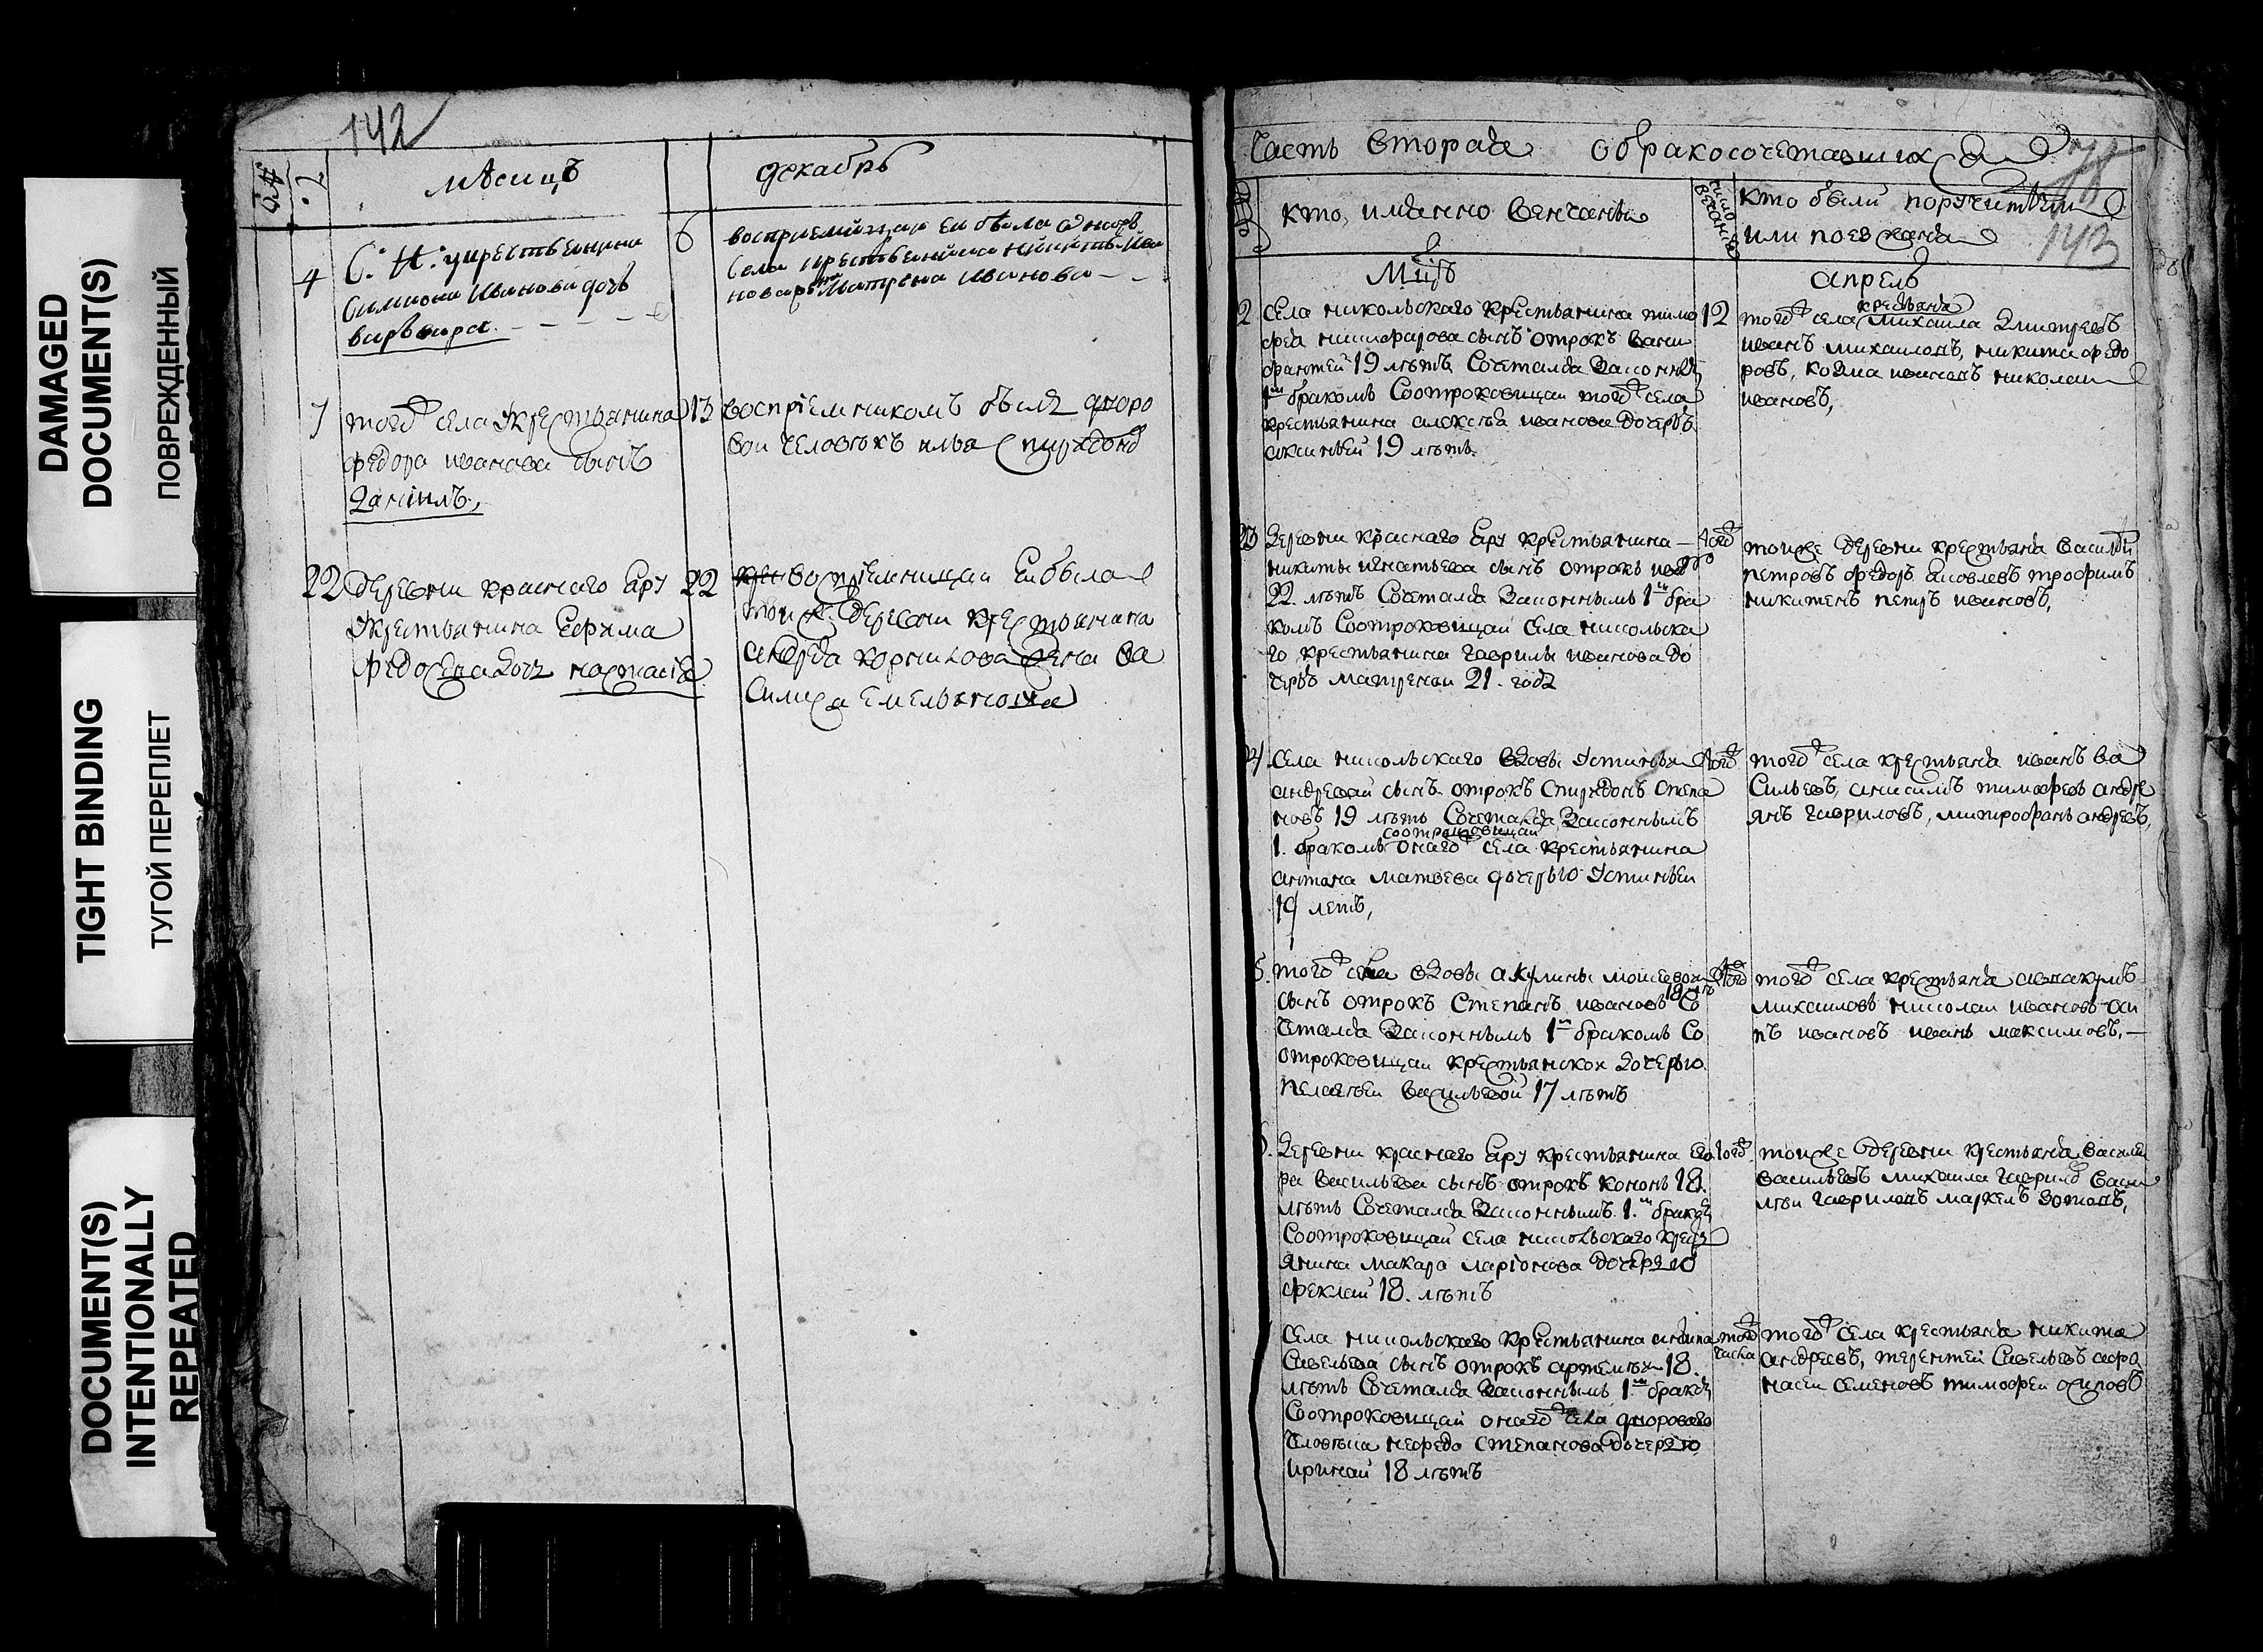 DAMAGED
DOCUMENT(S)
ПОВРЕЖДЕННЫЙ
TIGHT BINDING
ТУГОЙ ПЕРЕПЛЕТ
DOCUMENT(S)
INTENTIONALLY
REPEATED
142
мѣсяцъ
декабрь
4
С. Н. крестьянина
Симиона Иванова дочь
варъвара
6
восприемницаю ей была
села крестьянина Никиты
Матрена Иванова
7
тогож села крестьянина
федора иванова сынъ
данiилъ,
13
воспрiемникомъ былъ дворо
вои человѣкъ илья спиридонов
22
деревни краснаго яру
крестьянина Ефима
федосеева дочь настасiя
22
воспрiемницаи ей была
тои ж деревни крестьянина
андрея корнилова жена ва
силиса емельянова
Часть вторая о бракосочетавшихся
78
кто, имянно венчаны
кто были поручители
или поезжаня
143
Мцъ
апрель
2
села никольскаго крестьянина тимо
фея никифорова сынъ отрокъ
19 лѣтъ сочетался законнымъ
1м бракомъ со отроковицаи тогож села
крестьянина алексѣя иванова дочерью
аксиньей 19 лѣтъ
12
крестьяня
тогож села михаила дмитреевъ
иванъ михаиловъ, никита федо
ровъ, козма ивановъ николаи
ивановъ,
3
деревни краснаго яру крестьянина
никиты игнатьева сынъ отрокъ
22 лѣтъ сочетался законнымъ 1м бра
комъ со отроковицаи села никольска
го крестьянина гаврилы иванова до
черью матреной 21 года
тогож
тоиже деревни крестьяня василеи
петровъ федоръ яковлевъ трофимъ
никитенъ петръ ивановъ,
4
села никольскаго вдовы устиньи
андревай сынъ отрокъ спиридонъ степа
новъ 19 лѣтъ сочетался законнымъ
со отроковицаи
1. бракомъ онагож села крестьянина
антона матвева дочерью устиньеи
19 летъ,
тогож
тогож села крестьяня иванъ ва
сильевъ, анисимъ тимофеевъ андре
янъ гавриловъ, митрофанъ андревъ,
5.
тогож села вдовы акулины моисевои
18 лѣтъ
сынъ отрокъ степанъ ивановъ со
четался законнымъ 1м бракомъ со
отроковицаи крестьянскои дочерью
пелагѣеи васильевой 17 лѣтъ
тогож
тогож села крестьяня авакумъ
михаиловъ николаи ивановъ оси
пъ ивановъ иванъ максимовъ.
6.
деревни краснаго яру крестьянина его
ра васильева сынъ отрокъ кононъ 18.
лѣтъ сочетался законнымъ 1.м бракомъ
со отроковицаи села никольскаго кресть
янина макара ларiонова дочерью
феклаи 18. лѣтъ
тогож
тоиже деревни крестьяня василеи
васильевъ михаила гаврилов васи
лѣи гавриловъ маркелъ зотовъ,
села никольскаго крестьянина
савельева сынъ отрокъ артемѣи 18.
лѣтъ сочетался законнымъ 1м бракомъ
со отроковицаи онагож села двороваго
человѣка нефеда степанова дочерью
иринаи 18 лѣтъ
тогож
числа
тогож села крестьяня никита
андреевъ, терентеи савельевъ афо
насеи семеновъ тимофеи осиповъ